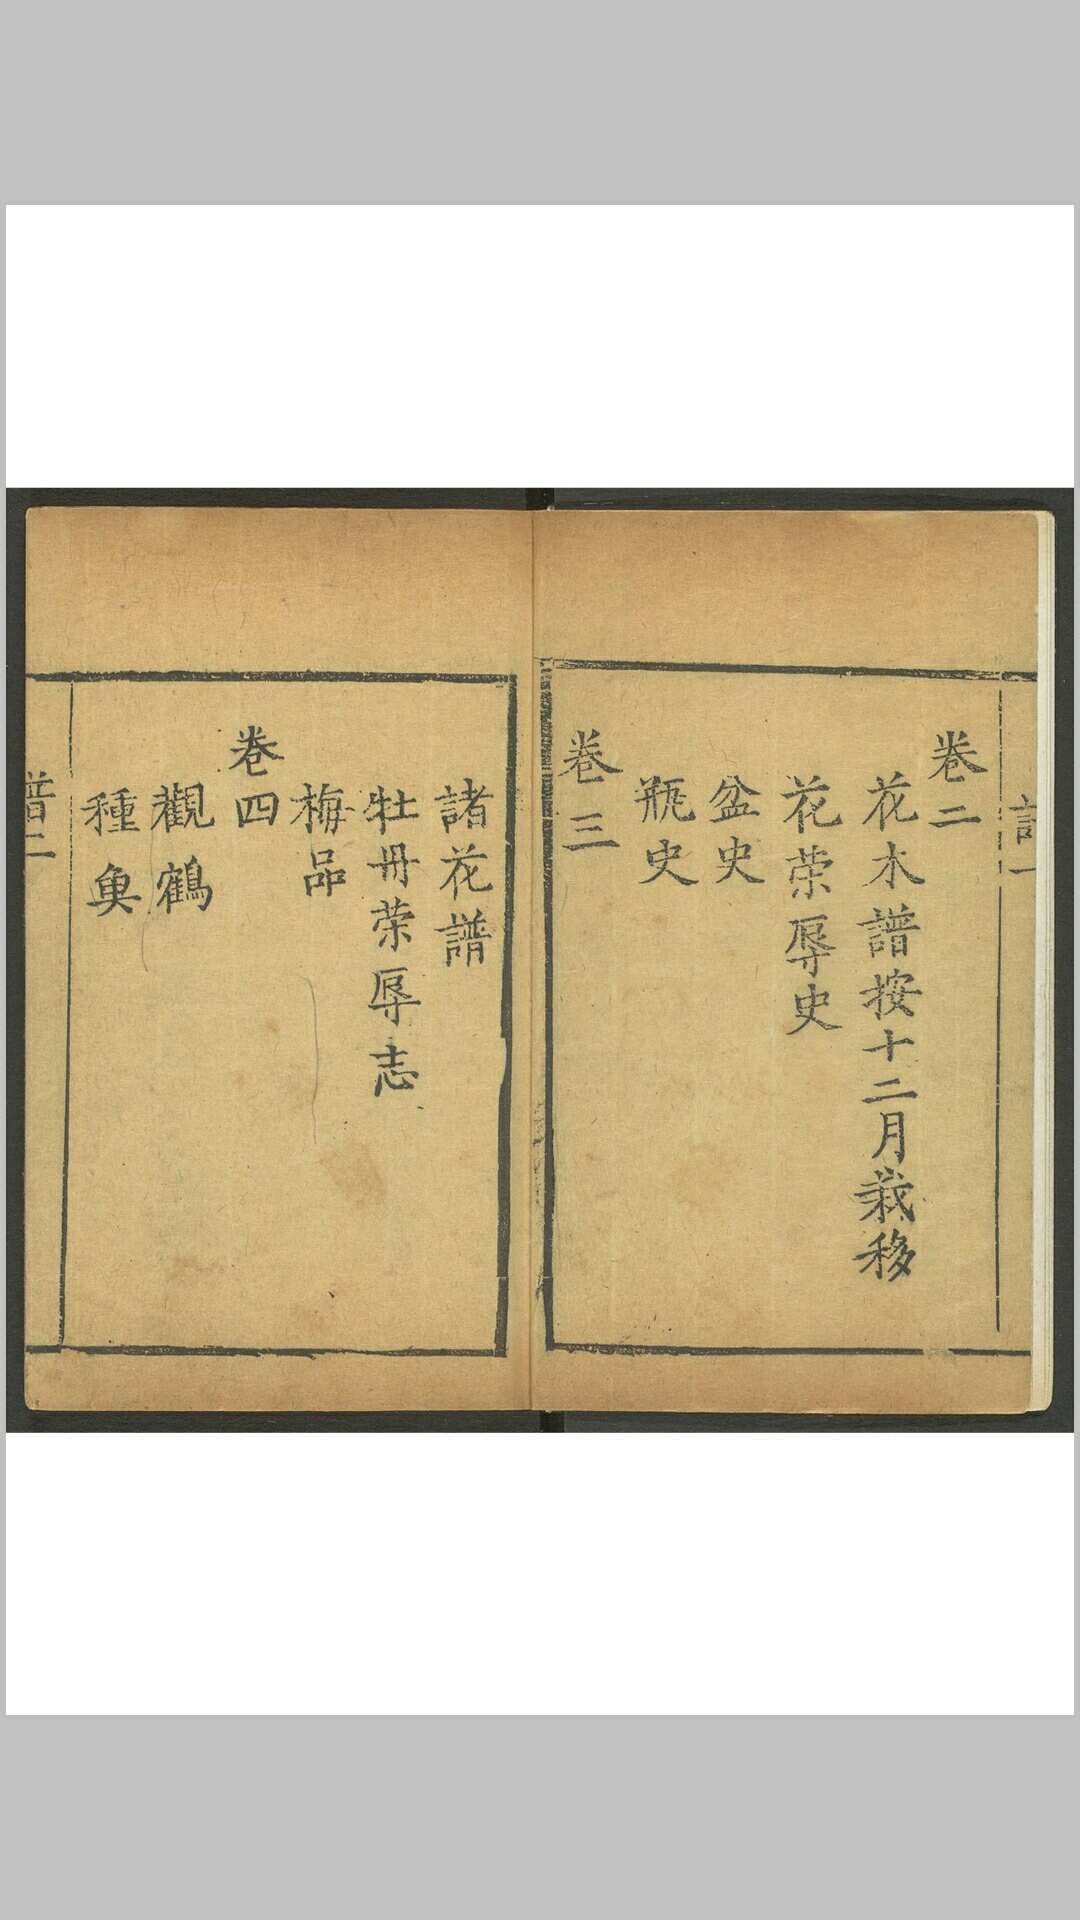 卷二
花木譜按十二月栽移
花荣辱史
盆史
瓶史
卷三
諸花譜
牡丹荣辱志
梅品
卷四
觀鶴
種魚
譜二